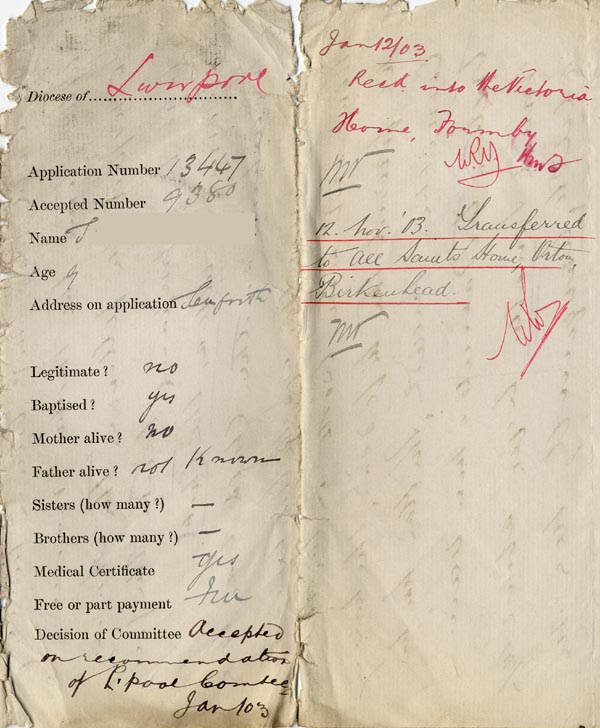 Diocese of Liverpool
Application Number 13447
Accepted Number 9380
Name J
Age 9
Address on application Seaforth
Legitimate ? no
Baptised ? yes
Mother alive ? no
Father alive ? not Known
Sisters (how many ?) —
Brothers (how many ?) —
Medical Certificate yes
Free or part payment Free
Decision of Committee Accepted
on recommendation
of L'pool Comtee
Jan 03
Jan 12/03
Recd into the Victoria
Home, Formby
12. Nov. '03. Transferred
to All Saints Home, Orton,
Birkenhead.